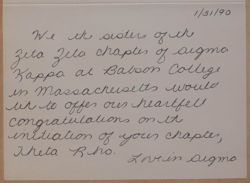 1/31/90
We the sisters of the
Zeta Zeta chapter of Sigma
Kappa at Babson College
in Massachusetts would
like to offer our heartfelt
congratulations on the
initiation of your chapter,
Theta Rho.
Love in Sigma